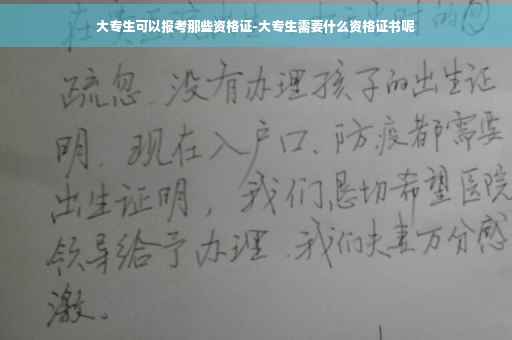 大专生可以报考那些资格证-大专生需要什么资格证书呢
疏忽、没有办理孩子的出生证
明、现在入户口、防疫都需要
出生证明，我们恳切希望医院
领导给予办理、我们夫妻万分感
激。